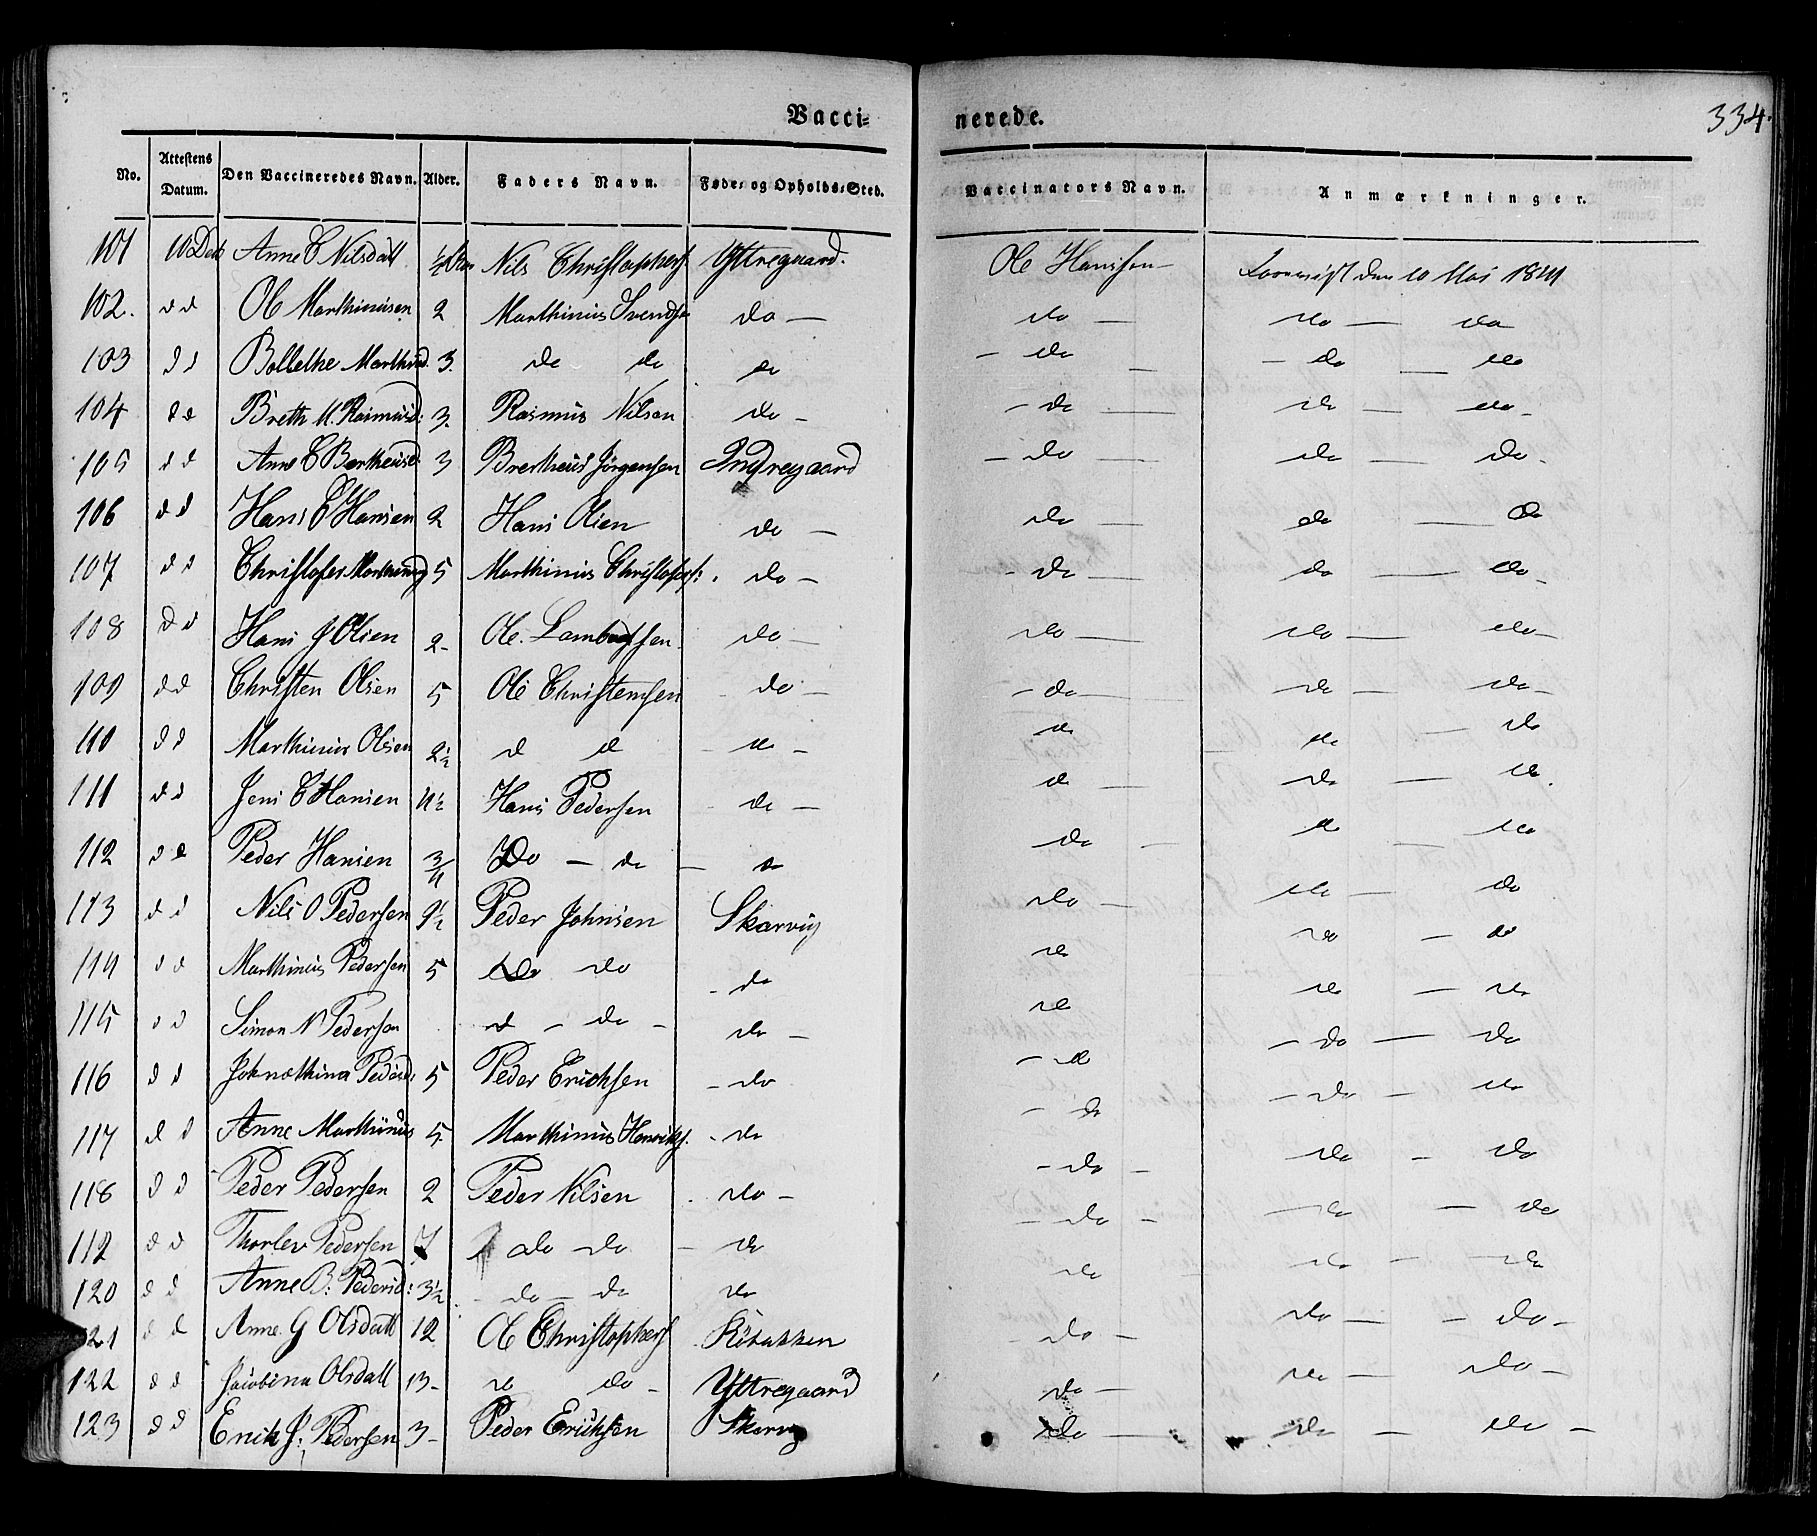 Vacci= nerede. 334.
No. Attestens Datum. Den Vaccineredes Navn. Alder. Faders Navn. Føde= og Opholds=Sted. Vaccinators Navn. Anmærkninger.
101 10 Dcb Anne C Nilsdatt ½ Nils Christophers Yttregaard. Ole Hansson den 10 Mai 1841
102. d d Ole Marthinusen 2 Marthinus Svends do — do — do — do
103 d d Bollethe Marthind. 3. do do do — do — do — do
104 d d Breth M. Rasmusd: 3. Rasmus Nilsen do - — do — do — do -
105 d d Anne C Bertheusd 3 Brertheus Jörgensen Indregaard — do — do — do -
106 d d Hans C Hansen 2 Hans Olsen do — do — do — do
107 d d Christofer Marthinus 5 Marthinus Christofers: do — - do — do — do -
108 d d Hans J Olsen 2- Ole. Lambregtsen do — do — do — do -
109 d d Christen Olsen 5 Ole Christensen - do — - do — do — do -
110 d d Marthinus Olsen 2½ d d - do - do do — do
111 d d Jens C Hansen 4½ Hans Pedersen - do — do — do — do.
112 d d Peder Hansen 3/4 Do — do — do do — do — do
113 d d Nils O Pedersen 9½ Peder Johnsen Skarvig do — do — do
114 d d Marthinus Pedersen 5 Do do - do do do — do
115 d d Simon N Pedersen d - do - do — do do — do
116 d d Johnathina Pedersd: 5 Peder Erichsen - do - do - do — do
117 d d Anne Marthinus 5. Marthinus Henriks. - do - do - do — do
118 d d Peder Pedersen 2 Peder Nilsen . do - - do - do - do
112 d d Thorlev Pedersen 7 do do - do — do - do — do
120 d d Anne B: Pedersd: 3½ - do — do do do do - — do
121 d d Anne G Olsdatt 12 Ole Christophers - do — do — - do -
122 d d Jacobina Olsdatt 13- do do - Yttregaard do — do — do -
123 d d Erich J: Pedersen 3- Peder Erichsen Skarvig do — do — do —